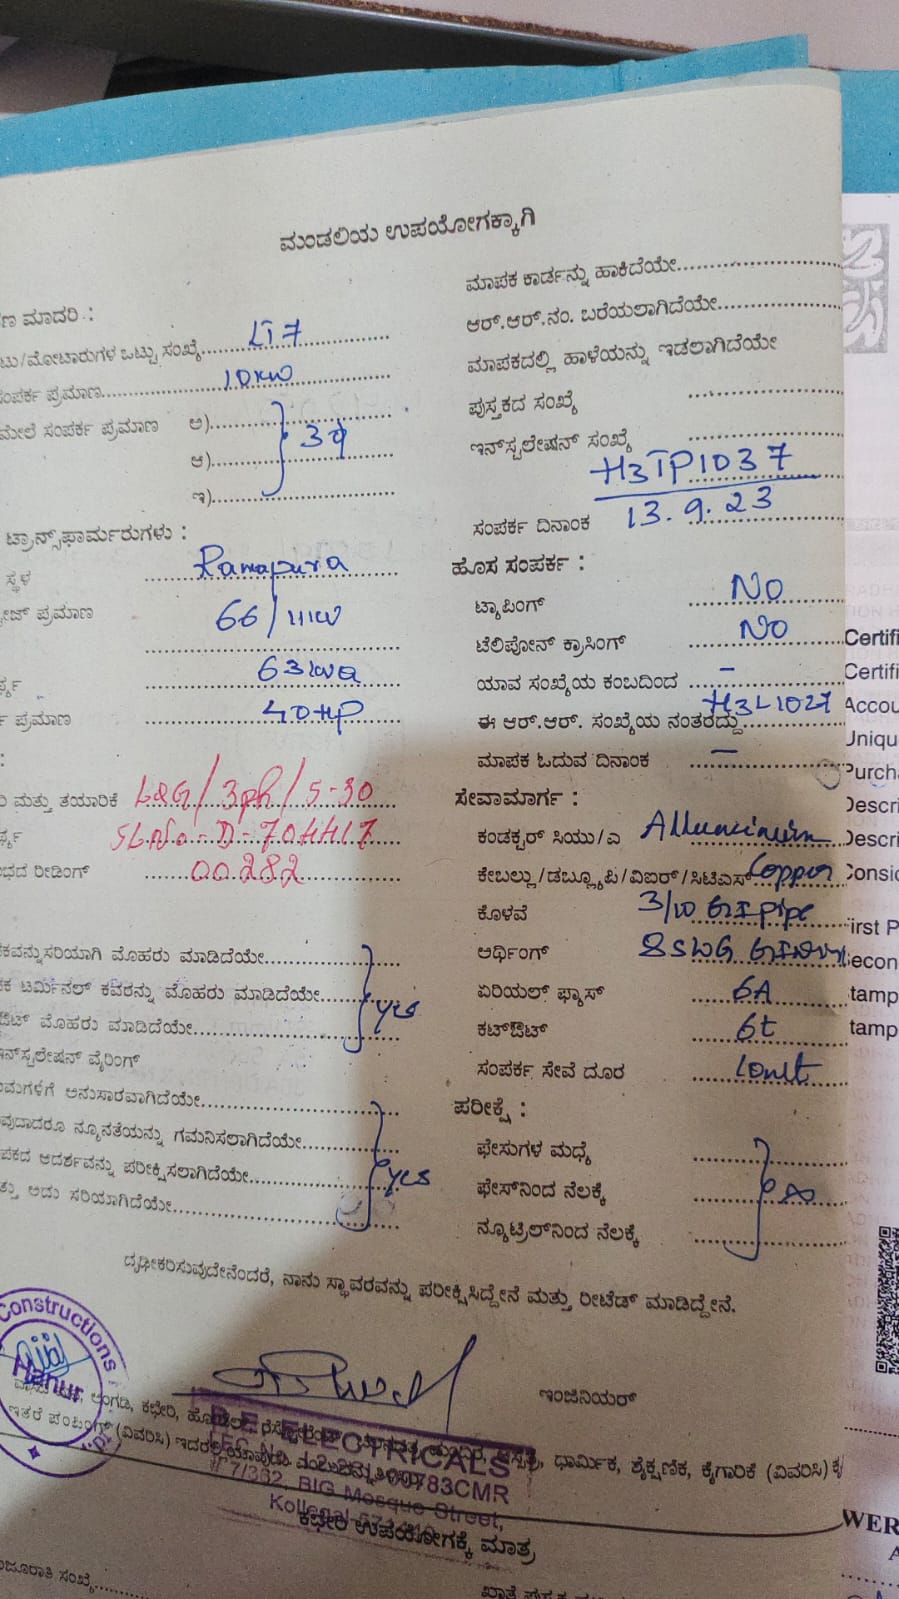 ಮಂಡಲಿಯ ಉಪಯೋಗಕ್ಕಾಗಿ
ಣ ಮಾದರಿ :
ಟು/ಮೋಟಾರುಗಳ ಒಟ್ಟು ಸಂಖ್ಯೆ LT7
ಸಂಪರ್ಕ ಪ್ರಮಾಣ 10kw
ಮೇಲೆ ಸಂಪರ್ಕ ಪ್ರಮಾಣ ಅ)
ಆ) 3φ
ಇ)
ಟ್ರಾನ್ಸ್‌ಫಾರ್ಮರುಗಳು :
ಸ್ಥಳ Ramapura
ಪ್ರಮಾಣ 66/11kv
63kva
ಪ್ರಮಾಣ 40HP
ಮತ್ತು ತಯಾರಿಕೆ L&G/3ph/5-30
SL.No.-D-7044417
ರೀಡಿಂಗ್ 00282
ಕವನ್ನು ಸರಿಯಾಗಿ ಮೊಹರು ಮಾಡಿದೆಯೇ
ಕ ಟರ್ಮಿನಲ್ ಕವರನ್ನು ಮೊಹರು ಮಾಡಿದೆಯೇ yes
ಔಟ್ ಮೊಹರು ಮಾಡಿದೆಯೇ
ಇನ್‌ಸ್ಟಲೇಷನ್ ವೈರಿಂಗ್
ಅನುಸಾರವಾಗಿದೆಯೇ
ವುದಾದರೂ ನ್ಯೂನತೆಯನ್ನು ಗಮನಿಸಲಾಗಿದೆಯೇ
ಪಕದ ಆದರ್ಶವನ್ನು ಪರೀಕ್ಷಿಸಲಾಗಿದೆಯೇ yes
ತ್ತು ಅದು ಸರಿಯಾಗಿದೆಯೇ
ಮಾಪಕ ಕಾರ್ಡನ್ನು ಹಾಕಿದೆಯೇ
ಆರ್.ಆರ್.ನಂ. ಬರೆಯಲಾಗಿದೆಯೇ
ಮಾಪಕದಲ್ಲಿ ಹಾಳೆಯನ್ನು ಇಡಲಾಗಿದೆಯೇ
ಪುಸ್ತಕದ ಸಂಖ್ಯೆ
ಇನ್‌ಸ್ಟಲೇಷನ್ ಸಂಖ್ಯೆ
H3TP1037
ಸಂಪರ್ಕ ದಿನಾಂಕ 13.9.23
ಹೊಸ ಸಂಪರ್ಕ :
ಟ್ಯಾಪಿಂಗ್ NO
ಟೆಲಿಪೋನ್ ಕ್ರಾಸಿಂಗ್ NO
ಯಾವ ಸಂಖ್ಯೆಯ ಕಂಬದಿಂದ –
ಈ ಆರ್.ಆರ್. ಸಂಖ್ಯೆಯ ನಂತರದ್ದು H3L1027
ಮಾಪಕ ಓದುವ ದಿನಾಂಕ –
ಸೇವಾಮಾರ್ಗ :
ಕಂಡಕ್ಟರ್ ಸಿಯು/ಎ
ಕೇಬಲ್ಲು/ಡಬ್ಲ್ಯೂಪಿ/ವಿಐಆರ್/ಸಿಟಿಎಸ್ Copper
ಕೊಳವೆ GI pipe
ಆರ್ಥಿಂಗ್ 8SWG
ಏರಿಯಲ್ ಫ್ಯೂಸ್ 6A
ಕಟ್‌ಔಟ್ 6t
ಸಂಪರ್ಕ ಸೇವೆ ದೂರ 10mt
ಪರೀಕ್ಷೆ :
ಫೇಸುಗಳ ಮಧ್ಯೆ
ಫೇಸ್‌ನಿಂದ ನೆಲಕ್ಕೆ ∞
ನ್ಯೂಟ್ರಿಲ್‌ನಿಂದ ನೆಲಕ್ಕೆ
ದೃಢೀಕರಿಸುವುದೇನೆಂದರೆ, ನಾನು ಸ್ಥಾವರವನ್ನು ಪರೀಕ್ಷಿಸಿದ್ದೇನೆ ಮತ್ತು ರೀಟೆಡ್ ಮಾಡಿದ್ದೇನೆ.
ಇಂಜಿನಿಯರ್
Constructions
Hanur
ಅಂಗಡಿ, ಕಛೇರಿ, ಧಾರ್ಮಿಕ, ಶೈಕ್ಷಣಿಕ, ಕೈಗಾರಿಕೆ (ವಿವರಿಸಿ)
ಇತರೆ ಪಂಪಿಂಗ್ (ವಿವರಿಸಿ)
ELECTRICALS
00783CMR
#7/362, BIG Mosque Street,
Kollegal
ಕಛೇರಿ ಉಪಯೋಗಕ್ಕೆ ಮಾತ್ರ
ಮಂಜೂರಾತಿ ಸಂಖ್ಯೆ
Certifi
Certifi
Accou
Uniqu
Purcha
Descri
Descri
Consid
First P
Secon
Stamp
Stamp
WER